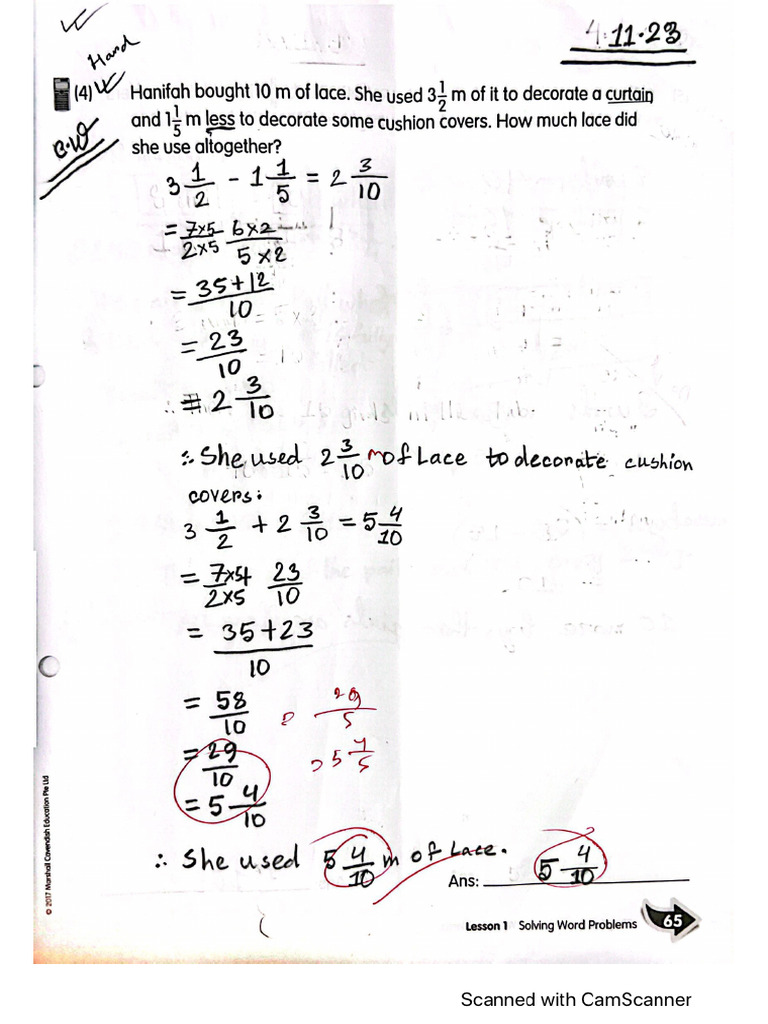 4.11.23
Hand
(4) Hanifah bought 10 m of lace. She used 3 1/2 m of it to decorate a curtain
and 1 1/5 m less to decorate some cushion covers. How much lace did
C.W
she use altogether?
3 1/2 - 1 1/5 = 2 3/10
= 7×5/2×5 6×2/5×2
= 35+12/10
= 23/10
= 2 3/10
∴ She used 2 3/10 m of Lace to decorate cushion
covers:
3 1/2 + 2 3/10 = 5 4/10
= 7×5/2×5 23/10
= 35+23/10
= 58/10 = 29/5
= 29/10 = 5 4/5
= 5 4/10
∴ She used 5 4/10 m of Lace.
Ans: 5 4/10
© 2017 Marshall Cavendish Education Pte Ltd
Lesson 1 Solving Word Problems 65
Scanned with CamScanner